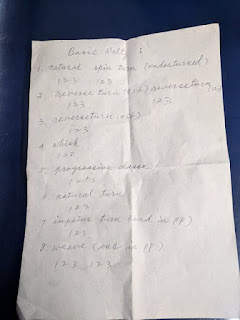 Basic Waltz I
1. Natural spin turn (underturned)
1 2 3 1 2 3
2. reverse turn (1/2) reverse turn
1 2 3 1 2 3
3. reverse turn
1 2 3
4. Whisk
1 2 3
5. progressive chasse
1 2 + 3
6. natural turn
1 2 3
7. impetus turn (end in pp)
1 2 3
8. weave (end in pp)
1 2 3 1 2 3